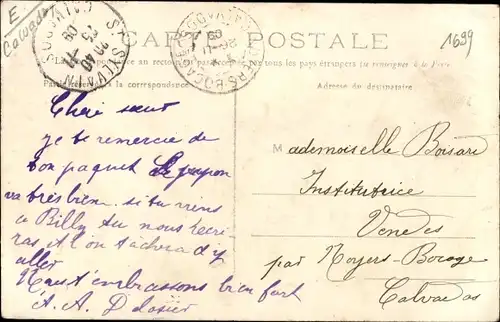 E
Calvados
CARTE POSTALE
1699
ST SYLVAIN
CALVADOS
tous les pays étrangers
Partie réservée à la correspondance
Adresse du destinataire
Chère sœur
je te remercie de
ton paquet Le jupon
va très bien. si tu viens
a Billy tu nous lecri
ras et l'on tachera d'y
aller
Nous t'embrassons bien fort
A. A. D
Mademoiselle Boisard
Institutrice
Vendes
par Noyers-Bocage
Calvados